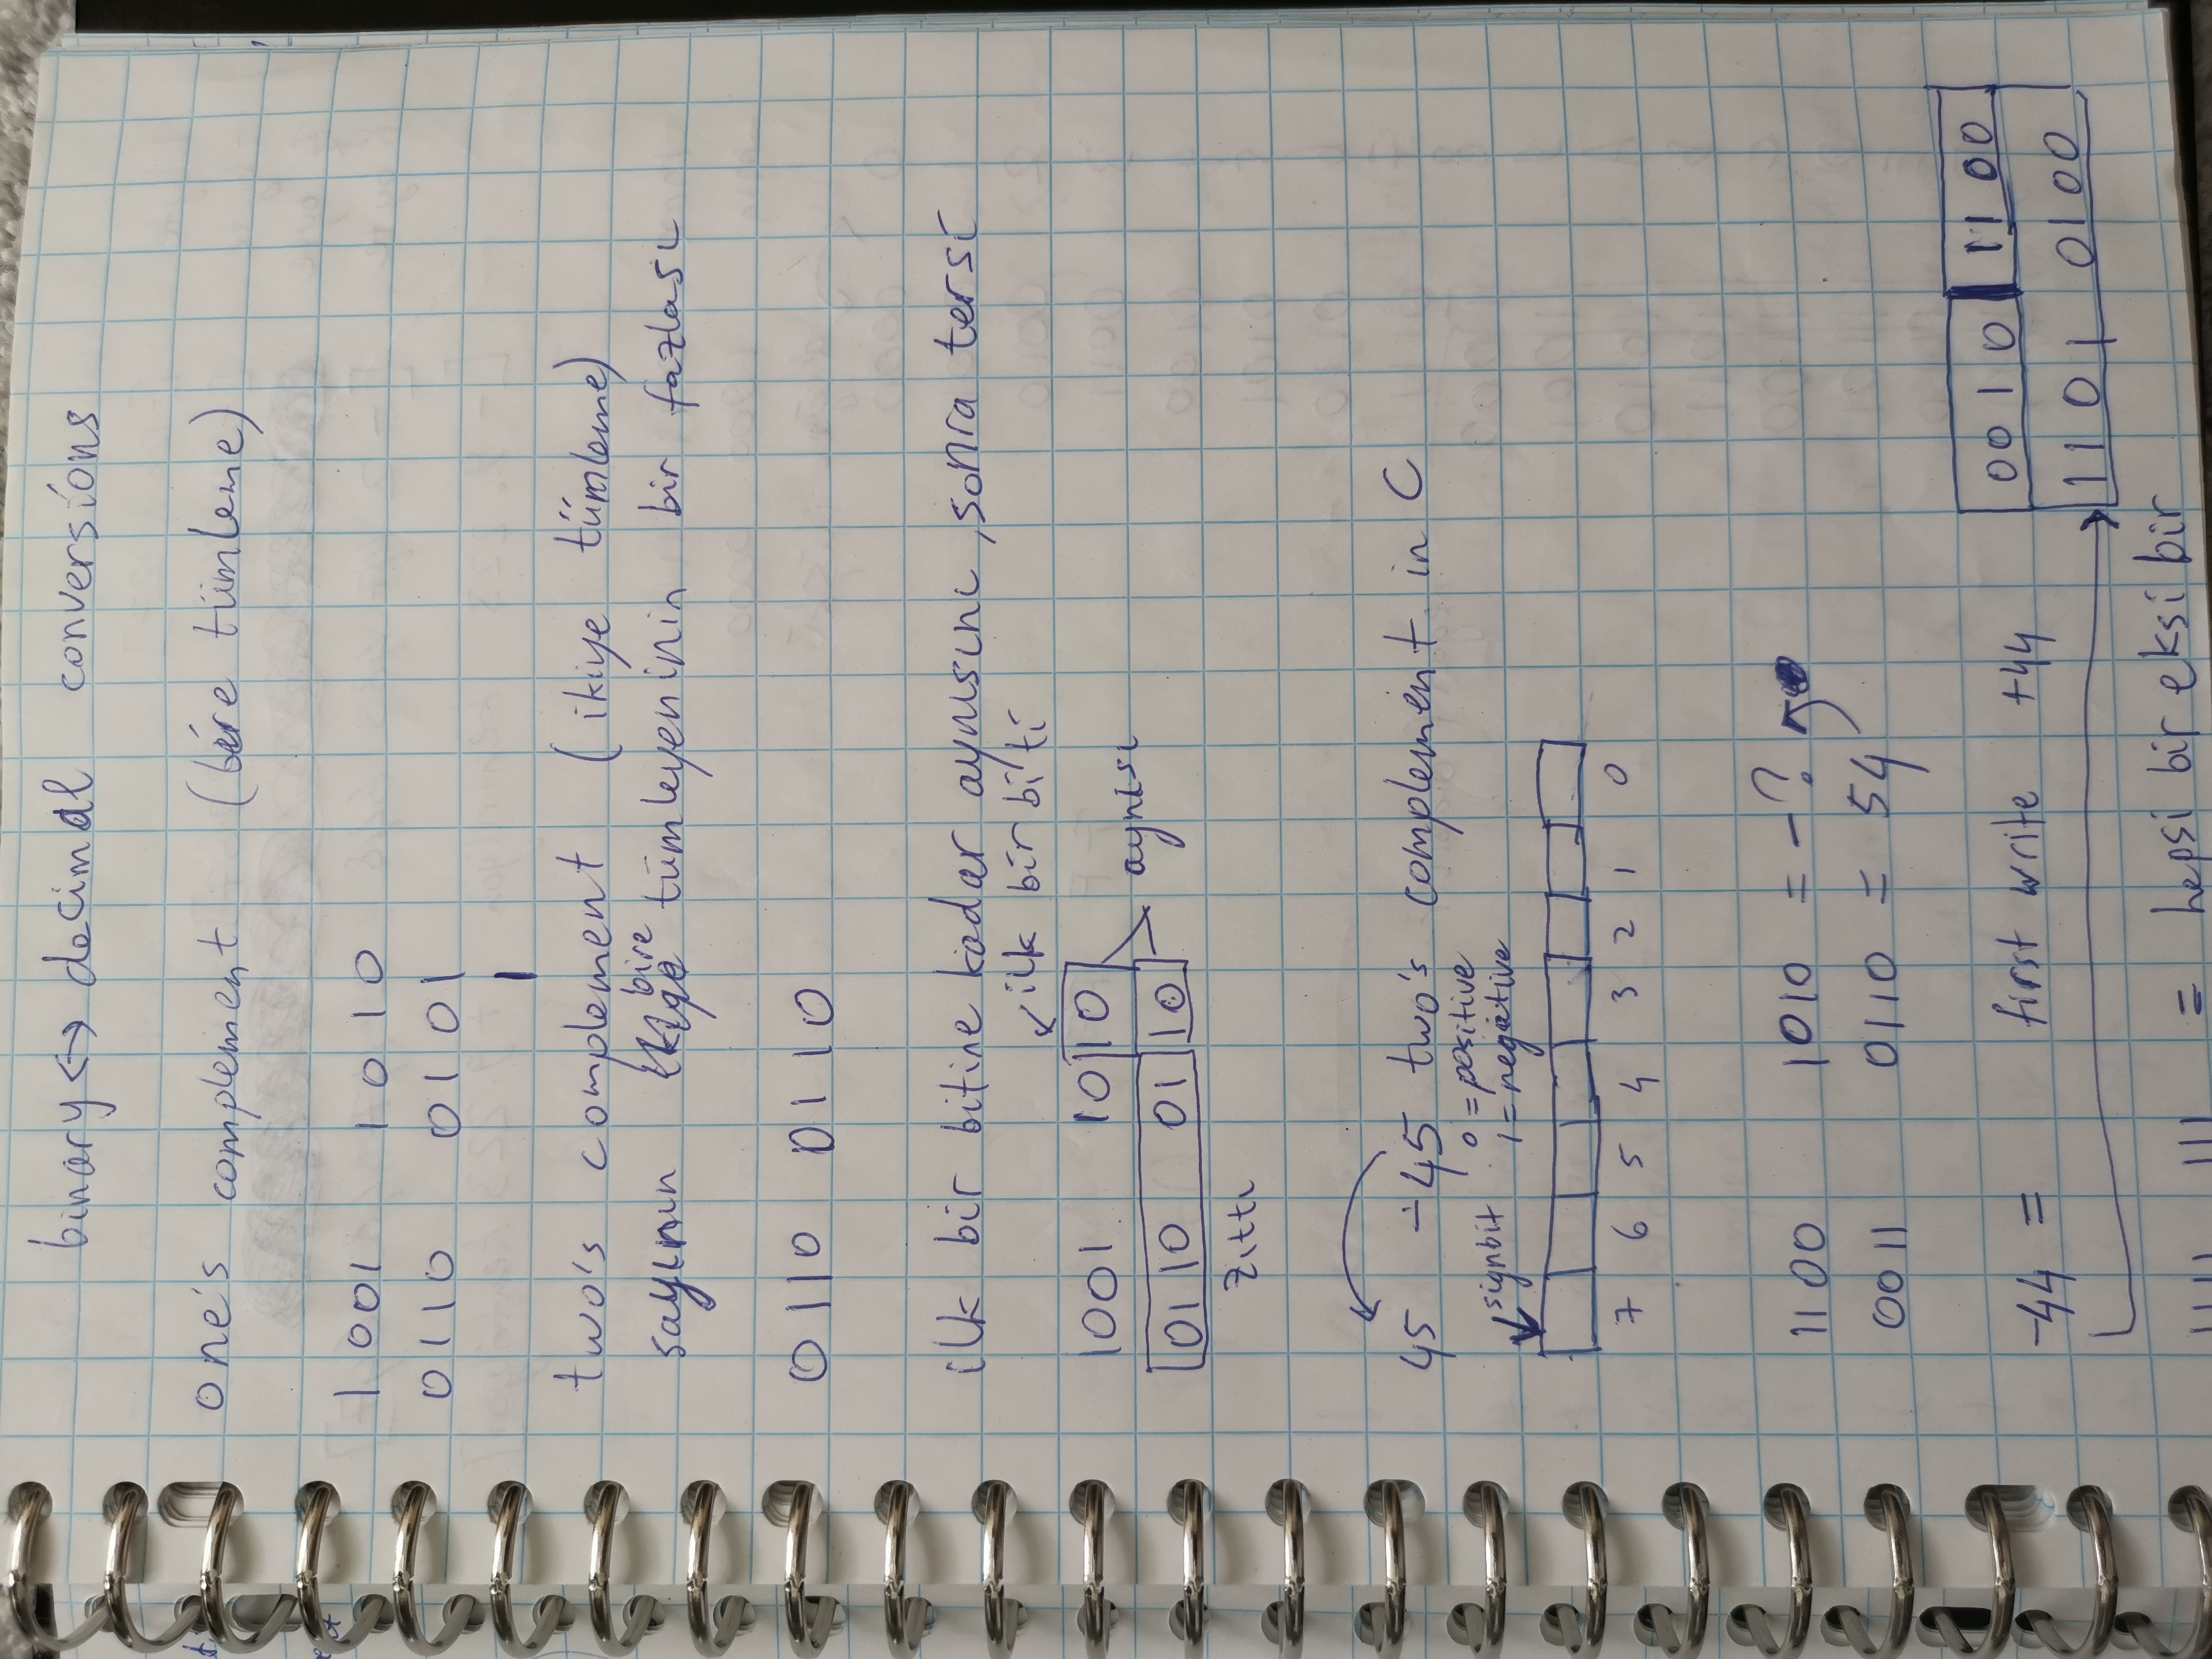 binary <-> decimal conversions
one's complement (bire tümleme)
1001 1010
0110 0101
1
two's complement (ikiye tümleme)
bire
sayının tümleyeninin bir fazlası
0110 0110
ilk bir bitine kadar aynısını, sonra tersi
↙ ilk bir biti
1001 1010
aynısı
0110 0110
zıttı
45 -45 two's complement in C
0 = positive
signbit
1 = negative
7 6 5 4 3 2 1 0
1100 1010 = -?
0011 0110 = 54
0010 1100
-44 = first write +44
1101 0100
1111 111 = hepsi bir eksi bir